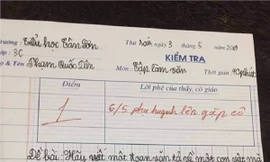 Trường: Tiểu học Tân Tiến Thứ hai ngày 3 tháng 5 năm 20
Lớp: 3C KIỂM TRA
Họ & Tên: Phạm Quốc Tiến Môn: Tập làm văn Thời gian: 40 phút
Điểm Lời phê của thầy, cô giáo
1 6/5 phụ huynh lên gặp cô
Đề bài: Hãy viết một đoạn văn tả về một con vật mà